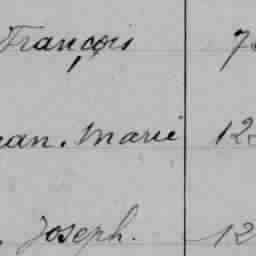 François 7
ean. Marie 12
Joseph. 12